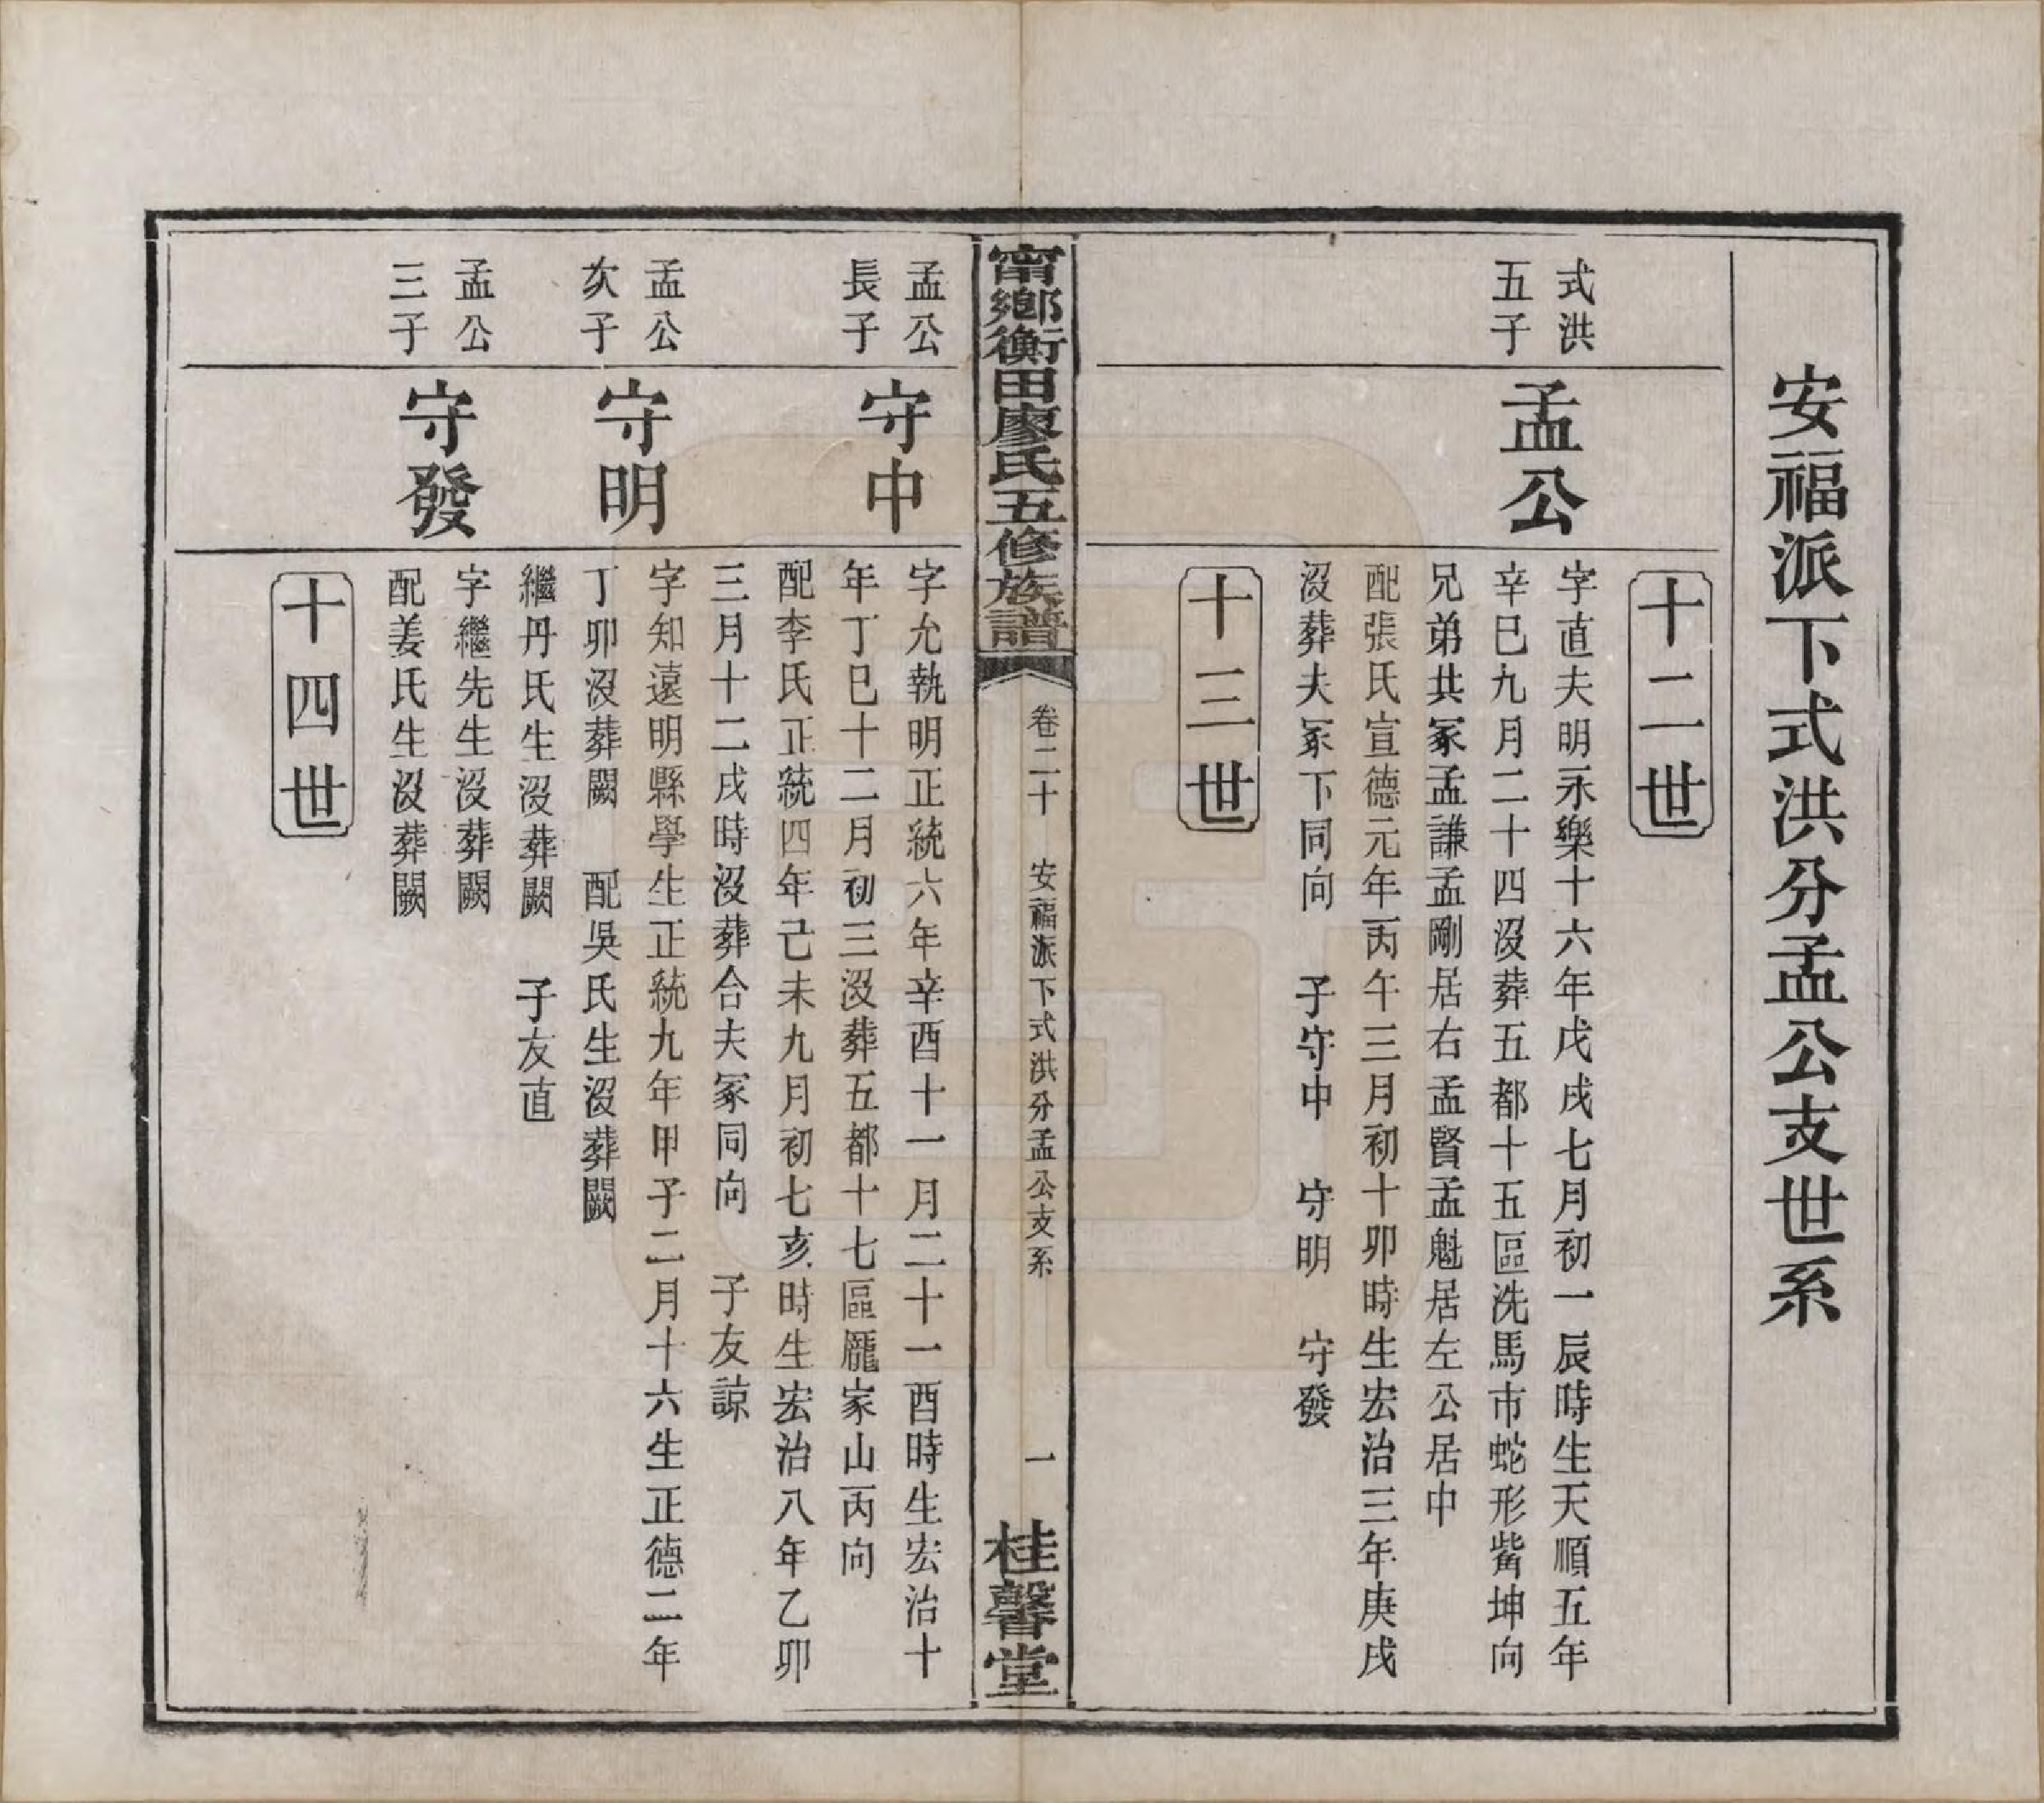 安福派下式洪分孟公支世系
十二世
式洪
五子
孟公
字直夫明永樂十六年戊戌七月初一辰時生天順五年
辛巳九月二十四沒葬五都十五區洗馬市蛇形觜坤向
兄弟共冢孟謙孟剛居右孟賢孟魁居左公居中
配張氏宣德元年丙午三月初十卯時生宏治三年庚戌
沒葬夫冢下同向 子守中 守明 守發
十三世
甯鄉衡田廖氏五修族譜
卷二十 安福派下式洪分孟公支系
一
桂馨堂
孟公
長子
守中
字允執明正統六年辛酉十一月二十一酉時生宏治十
年丁巳十二月初三沒葬五都十七區龎家山丙向
配李氏正統四年己未九月初七亥時生宏治八年乙卯
三月十二戌時沒葬合夫冢同向 子友諒
孟公
次子
守明
字知遠明縣學生正統九年甲子二月十六生正德二年
丁卯沒葬闕 配吳氏生沒葬闕
繼丹氏生沒葬闕 子友直
孟公
三子
守發
字繼先生沒葬闕
配姜氏生沒葬闕
十四世